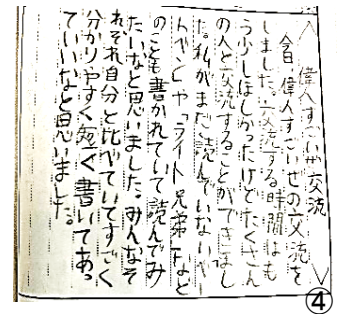 ＜偉人すごいぜ交流＞
今日、偉人すごいぜの交流を
しました。交流する時間はも
う少しほしかったけどたくさん
の人と交流することができまし
た。私がまだ読んでいない「ベー
トーベン」や「ライト兄弟」など
のことも書かれていて読んでみ
たいなと思いました。みんなそ
れぞれ自分と比べていてすごく
分かりやすく短く書いてあっ
ていいなと思いました。
④